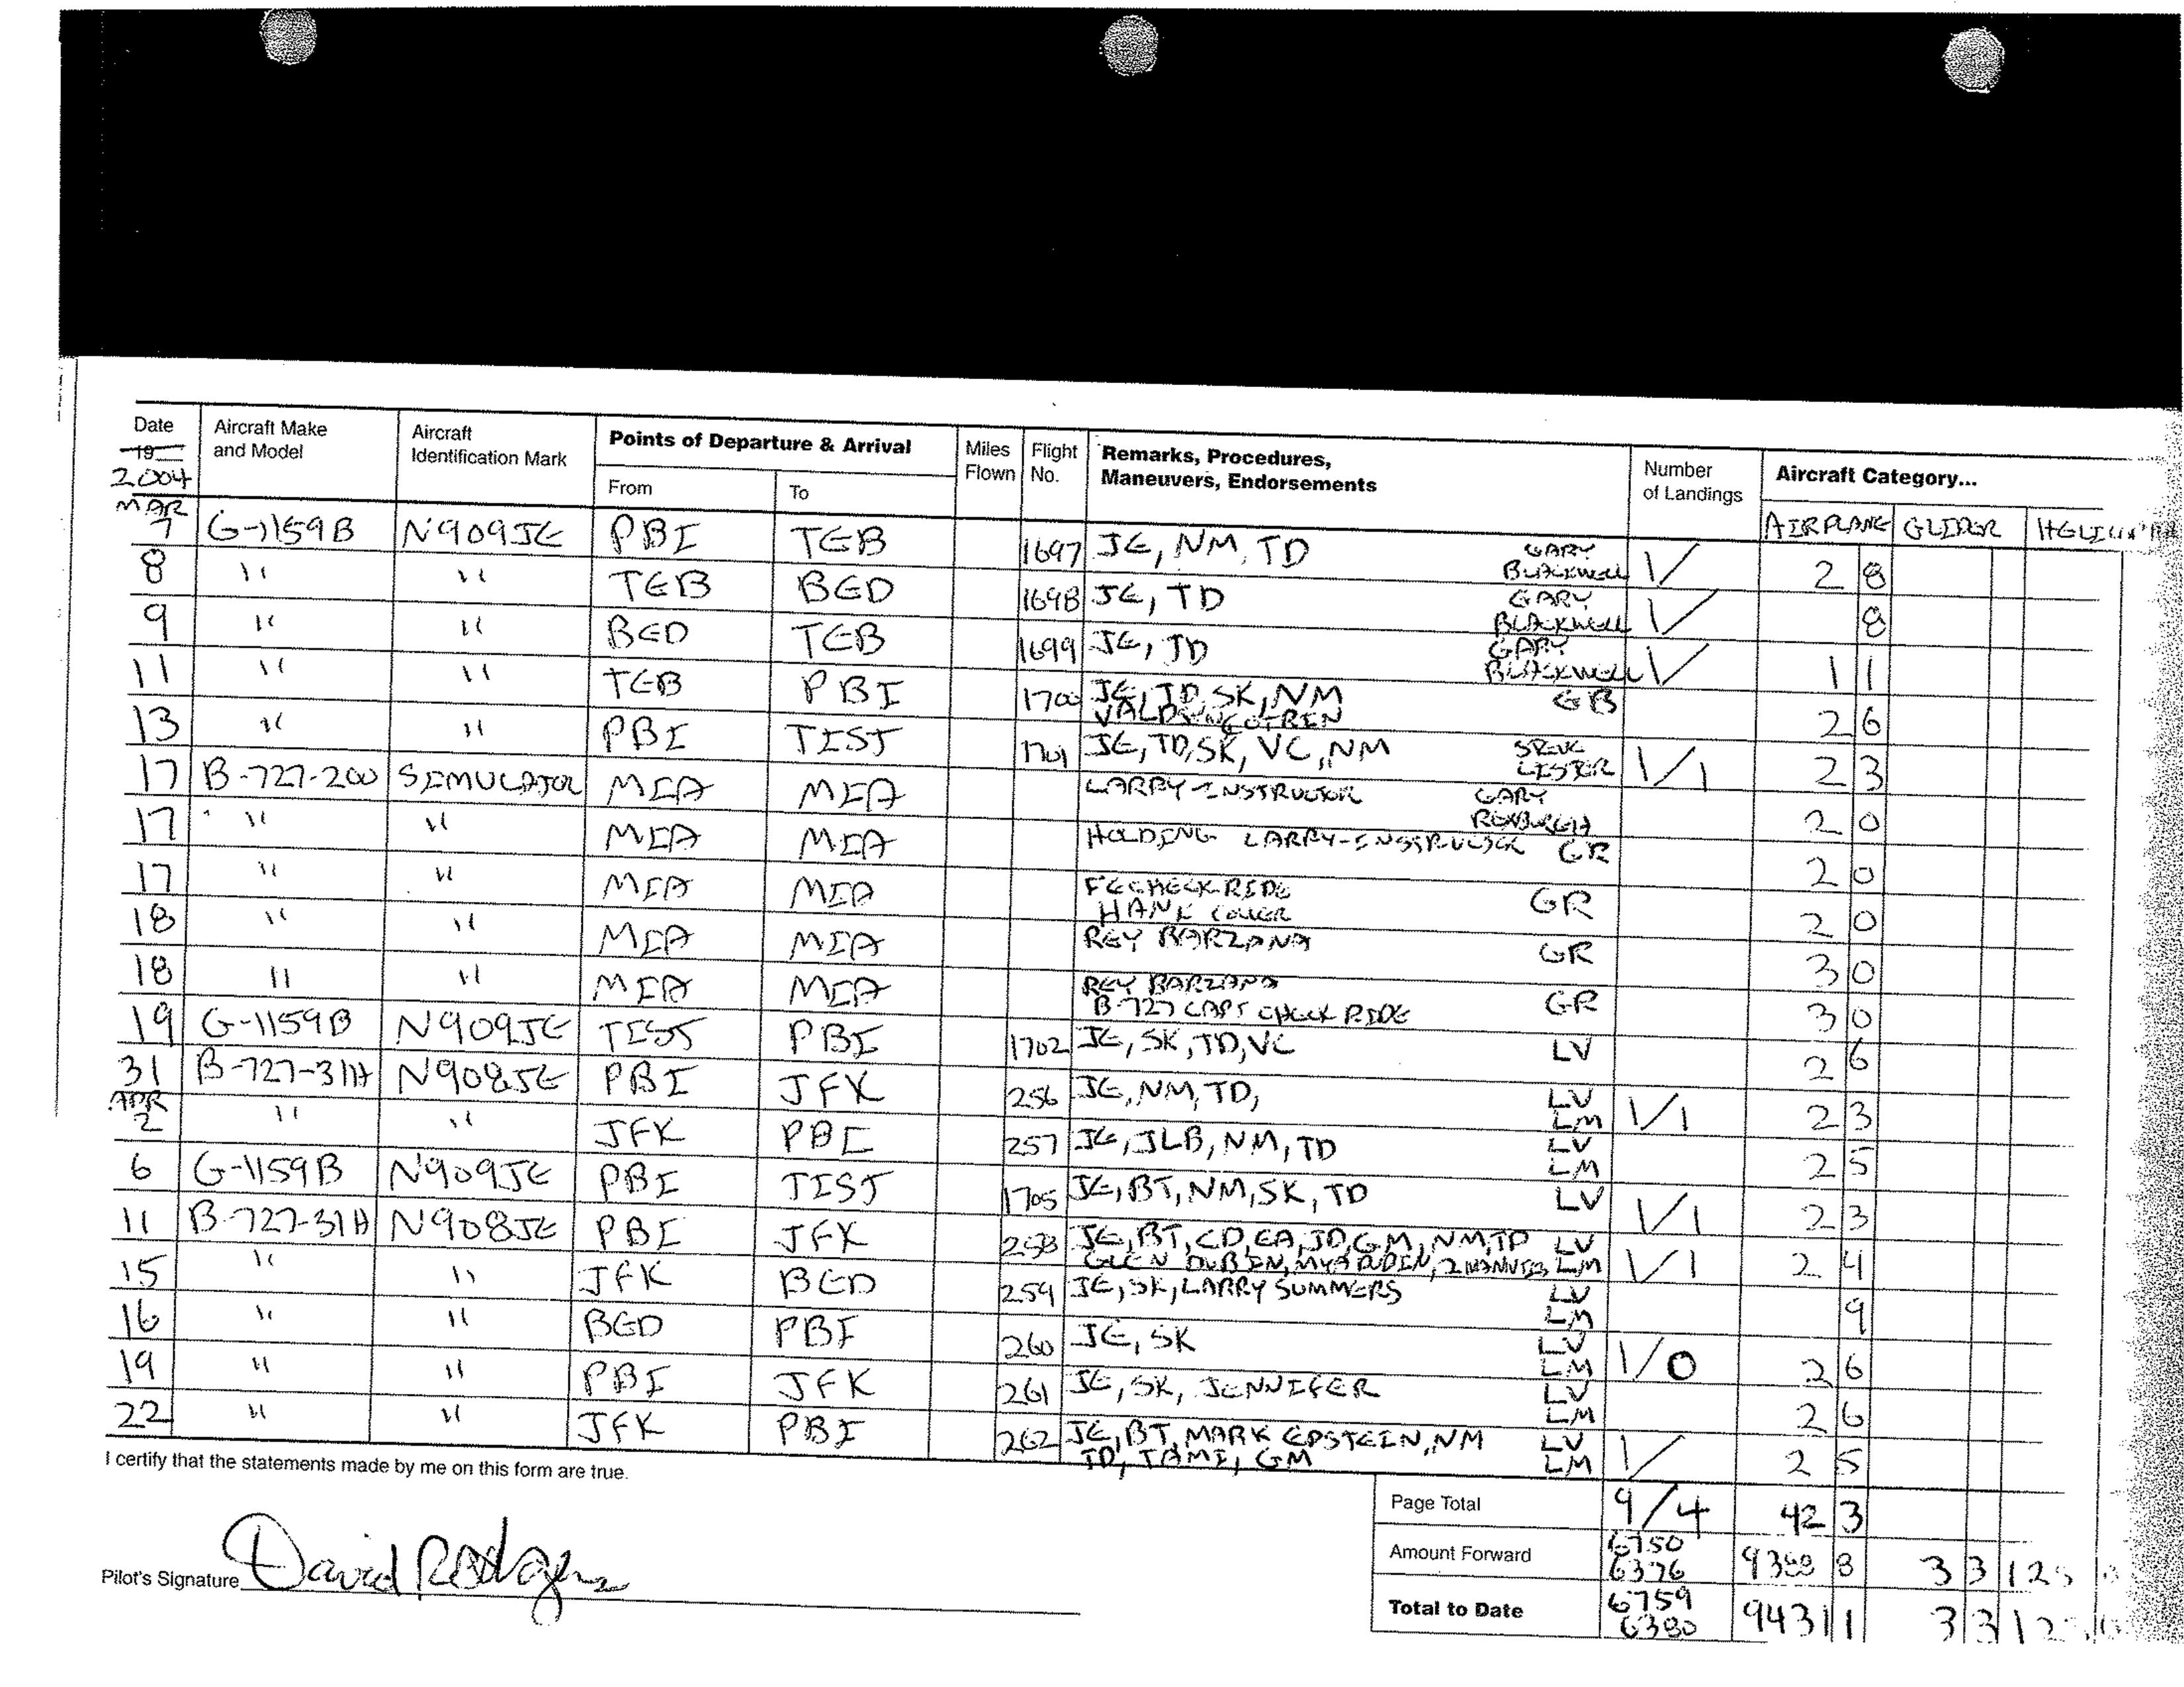 Date Aircraft Make and Model Aircraft Identification Mark Points of Departure & Arrival Miles Flown Flight No. Remarks, Procedures, Maneuvers, Endorsements Number of Landings Aircraft Category...
19
2004 From To AIRPLANE GLIDER
MAR
7 G-1159B N909JE PBI TEB 1697 JE, NM, TD GARY BLACKWELL 1/ 2 8
8 " " TEB BED 1698 JE, TD GARY BLACKWELL 1/ 8
9 " " BED TEB 1699 JE, TD GARY BLACKWELL 1/ 1 1
11 " " TEB PBI 1700 JE, TD, SK, NM GB 2 6
13 " " PBI TIST 1701 JE, TD, SK, VC, NM LESTER 1/1 2 3
17 B-727-200 SIMULATOR MIA MIA LARRY-INSTRUCTOR GARY ROXBURGH 2 0
17 " " MIA MIA HOLDING LARRY-INSTRUCTOR GR 2 0
17 " " MIA MIA FE CHECK RIDE HANK GR 2 0
18 " " MIA MIA REY BARZANA GR 3 0
18 " " MIA MIA REY BARZANA B-727 CAPT CHECK RIDE GR 3 0
19 G-1159B N909JE TIST PBI 1702 JE, SK, TD, VC LV 2 6
31 B-727-31H N908JE PBI JFK 256 JE, NM, TD, LV LM 1/1 2 3
APR
2 " " JFK PBI 257 JE, JLB, NM, TD LV LM 2 5
6 G-1159B N909JE PBI TIST 1705 JE, BT, NM, SK, TD LV 1/1 2 3
11 B-727-31H N908JE PBI JFK 258 JE, BT, CD, EA, JD, GM, NM, TD LV
GLEN DUBIN, 2 LM 1/1 2 4
15 " " JFK BED 259 JE, SK, LARRY SUMMERS LV LM 9
16 " " BED PBI 260 JE, SK LV LM 1/0 2 6
19 " " PBI JFK 261 JE, SK, JENNIFER LV LM 2 6
22 " " JFK PBI 262 JE, BT, MARK EPSTEIN, NM LV
TD, TAMI, GM LM 1/ 2 5
I certify that the statements made by me on this form are true.
Page Total 9/4 42 3
Amount Forward 6750 6376 9388 8 3 3
Total to Date 6759 6380 9431 1 3 3
Pilot's Signature David Rodgers